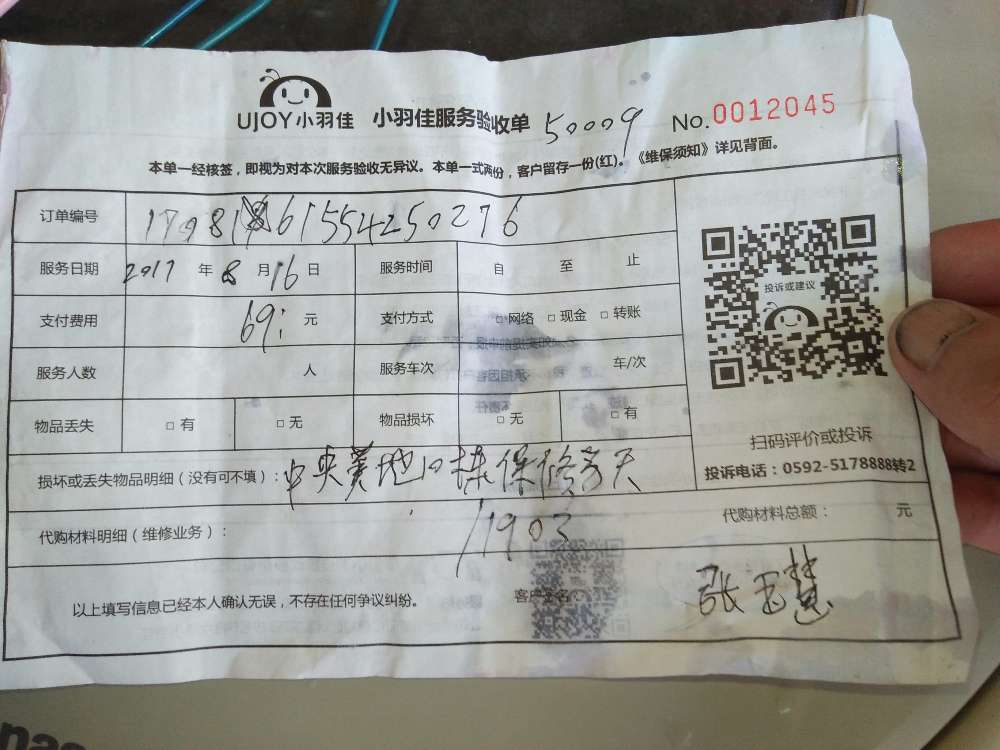 UJOY小羽佳 小羽佳服务验收单 50009 No.0012045
本单一经核签，即视为对本次服务验收无异议。本单一式两份，客户留存一份(红)。《维保须知》详见背面。
订单编号 1708161554250276
服务日期 2017 年 8 月 16 日 服务时间 自 至 止
投诉或建议
支付费用 69: 元 支付方式 □网络 □现金 □转账
服务人数 人 服务车次 车/次
物品丢失 □有 □无 物品损坏 □无 □有
扫码评价或投诉
投诉电话：0592-5178888转2
损坏或丢失物品明细（没有可不填）：中央美地 栋保修
1903
代购材料明细（维修业务）： 代购材料总额： 元
以上填写信息已经本人确认无误，不存在任何争议纠纷。 客户签名 张玉慧